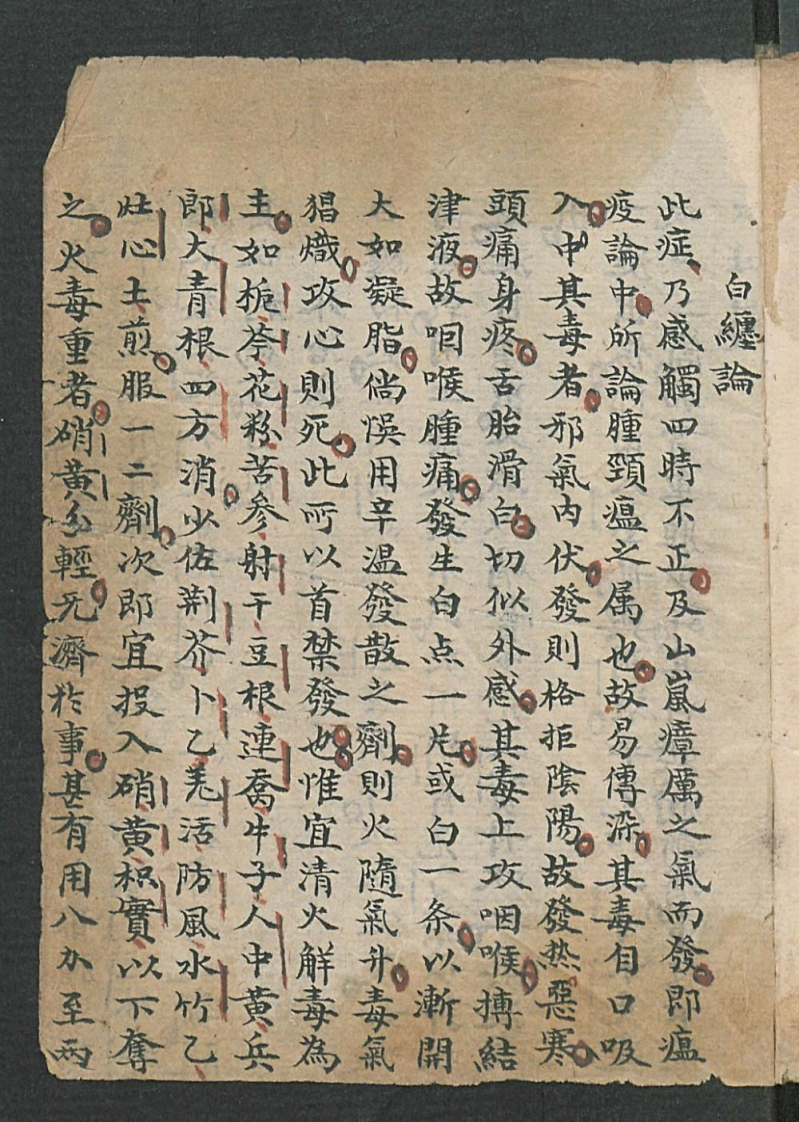 白纏論
此症乃感觸四時不正及山嵐瘴厲之氣而發即瘟
疫論中所論腫頸瘟之属也故易傳染其毒自口吸
入中其毒者邪氣内伏發則格拒陰陽故發热惡寒
頭痛身疼舌胎滑白切似外感其毒上攻咽喉搏結
津液故咽喉腫痛發生白点一片或白一条以漸開
大如凝脂倘悞用辛温發散之劑則火隨氣升毒氣
猖熾攻心則死此所以首禁發也惟宜清火解毒為
主如梔芩花粉苦參射干豆根連喬牛子人中黄兵
郎大青根四方消少佐荆芥卜乙羌活防風水竹乙
灶心土煎服一二劑次即宜投入硝黄枳實以下奪
之火毒重者硝黄分輕无濟於事甚有用八九至兩